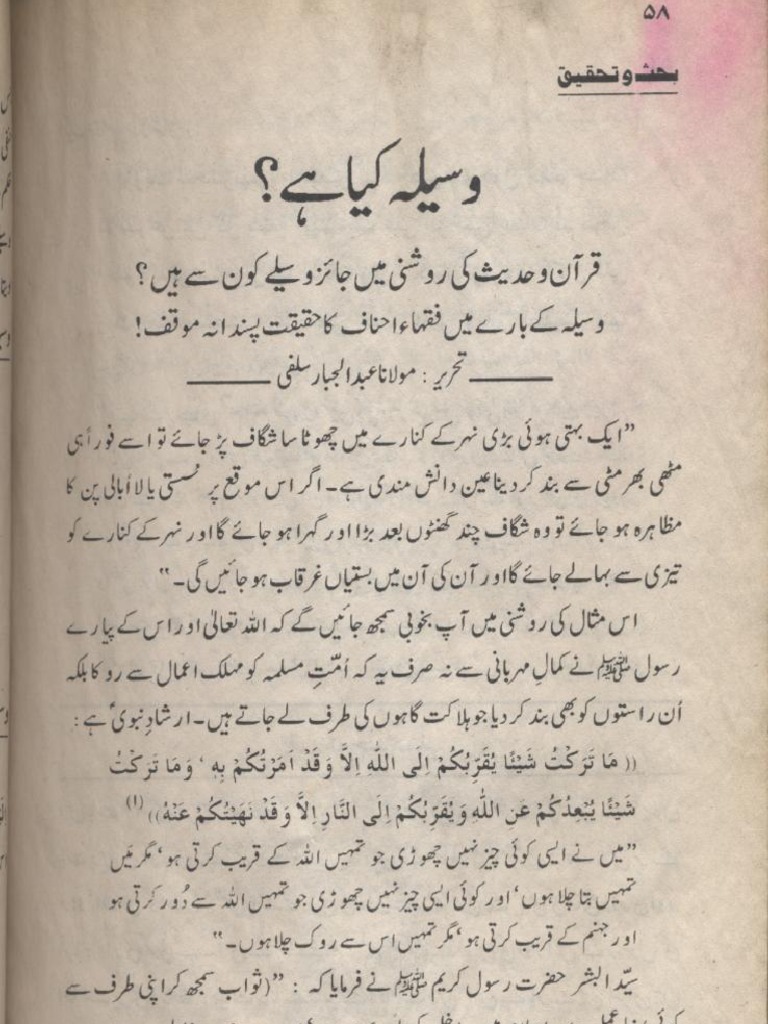 ۵۸
بحث و تحقیق
وسیلہ کیا ہے؟
قرآن و حدیث کی روشنی میں جائز وسیلے کون سے ہیں؟
وسیلہ کے بارے میں فقہاء احناف کا حقیقت پسندانہ موقف!
تحریر : مولانا عبدالجبار سلفی
”ایک بہتی ہوئی بڑی نہر کے کنارے میں چھوٹا سا شگاف پڑ جائے تو اسے فوراً ہی
مٹھی بھر مٹی سے بند کر دینا عین دانش مندی ہے۔ اگر اس موقع پر سستی یا لا اُبالی پن کا
مظاہرہ ہو جائے تو وہ شگاف چند گھنٹوں بعد بڑا اور گہرا ہو جائے گا اور نہر کے کنارے کو
تیزی سے بہا لے جائے گا اور آن کی آن میں بستیاں غرقاب ہو جائیں گی۔“
اس مثال کی روشنی میں آپ بخوبی سمجھ جائیں گے کہ اللہ تعالیٰ اور اس کے پیارے
رسول ﷺ نے کمالِ مہربانی سے نہ صرف یہ کہ اُمّتِ مسلمہ کو مہلک اعمال سے روکا بلکہ
اُن راستوں کو بھی بند کر دیا جو ہلاکت گاہوں کی طرف لے جاتے ہیں۔ ارشادِ نبویؐ ہے :
((مَا تَرَكْتُ شَيْئًا يُقَرِّبُكُمْ اِلَى اللّٰهِ اِلاَّ وَقَدْ اَمَرْتُكُمْ بِهِ ‘ وَمَا تَرَكْتُ
شَيْئًا يُبْعِدُكُمْ عَنِ اللّٰهِ وَيُقَرِّبُكُمْ اِلَى النَّارِ اِلاَّ وَقَدْ نَهَيْتُكُمْ عَنْهُ)) (۱)
”میں نے ایسی کوئی چیز نہیں چھوڑی جو تمہیں اللہ کے قریب کرتی ہو‘ مگر مَیں
تمہیں بتا چلا ہوں‘ اور کوئی ایسی چیز نہیں چھوڑی جو تمہیں اللہ سے دُور کرتی ہو
اور جہنم کے قریب کرتی ہو‘ مگر تمہیں اس سے روک چلا ہوں۔“
سیّد البشر حضرت رسول کریم ﷺ نے فرمایا کہ : ”(ثواب سمجھ کر اپنی طرف سے